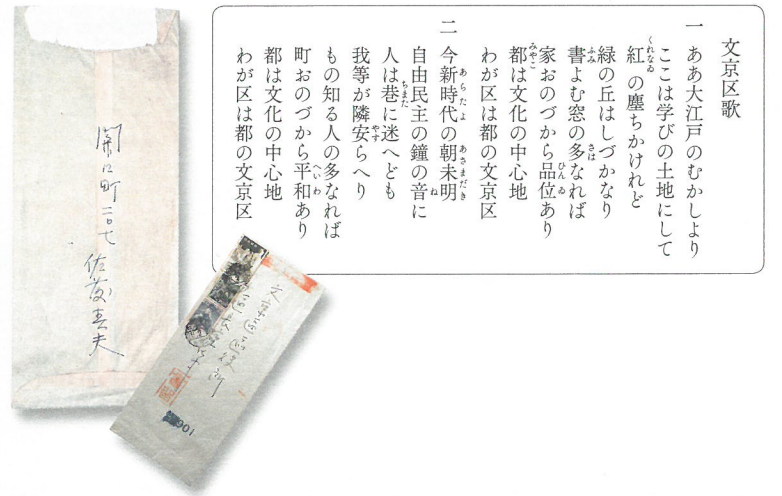 文京区歌
一 ああ大江戸のむかしより
ここは学びの土地にして
紅の塵ちかけれど
緑の丘はしづかなり
書よむ窓の多なれば
家おのづから品位あり
都は文化の中心地
わが区は都の文京区
二 今新時代の朝未明
自由民主の鐘の音に
人は巷に迷へども
我等が隣安らへり
もの知る人の多なれば
町おのづから平和あり
都は文化の中心地
わが区は都の文京区
関口町二〇七
佐藤春夫
文京区区役所
901